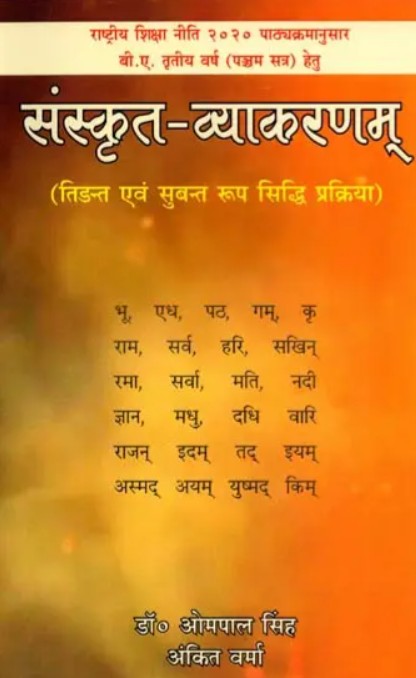 राष्ट्रीय शिक्षा नीति २०२० पाठ्यक्रमानुसार
बी.ए. तृतीय वर्ष (पञ्चम सत्र) हेतु
संस्कृत-व्याकरणम्
(तिङन्त एवं सुबन्त रूप सिद्धि प्रक्रिया)
भू, एध, पठ, गम्, कृ
राम, सर्व, हरि, सखिन्
रमा, सर्वा, मति, नदी
ज्ञान, मधु, दधि वारि
राजन् इदम् तद् इयम्
अस्मद् अयम् युष्मद् किम्
डॉ० ओमपाल सिंह
अंकित वर्मा